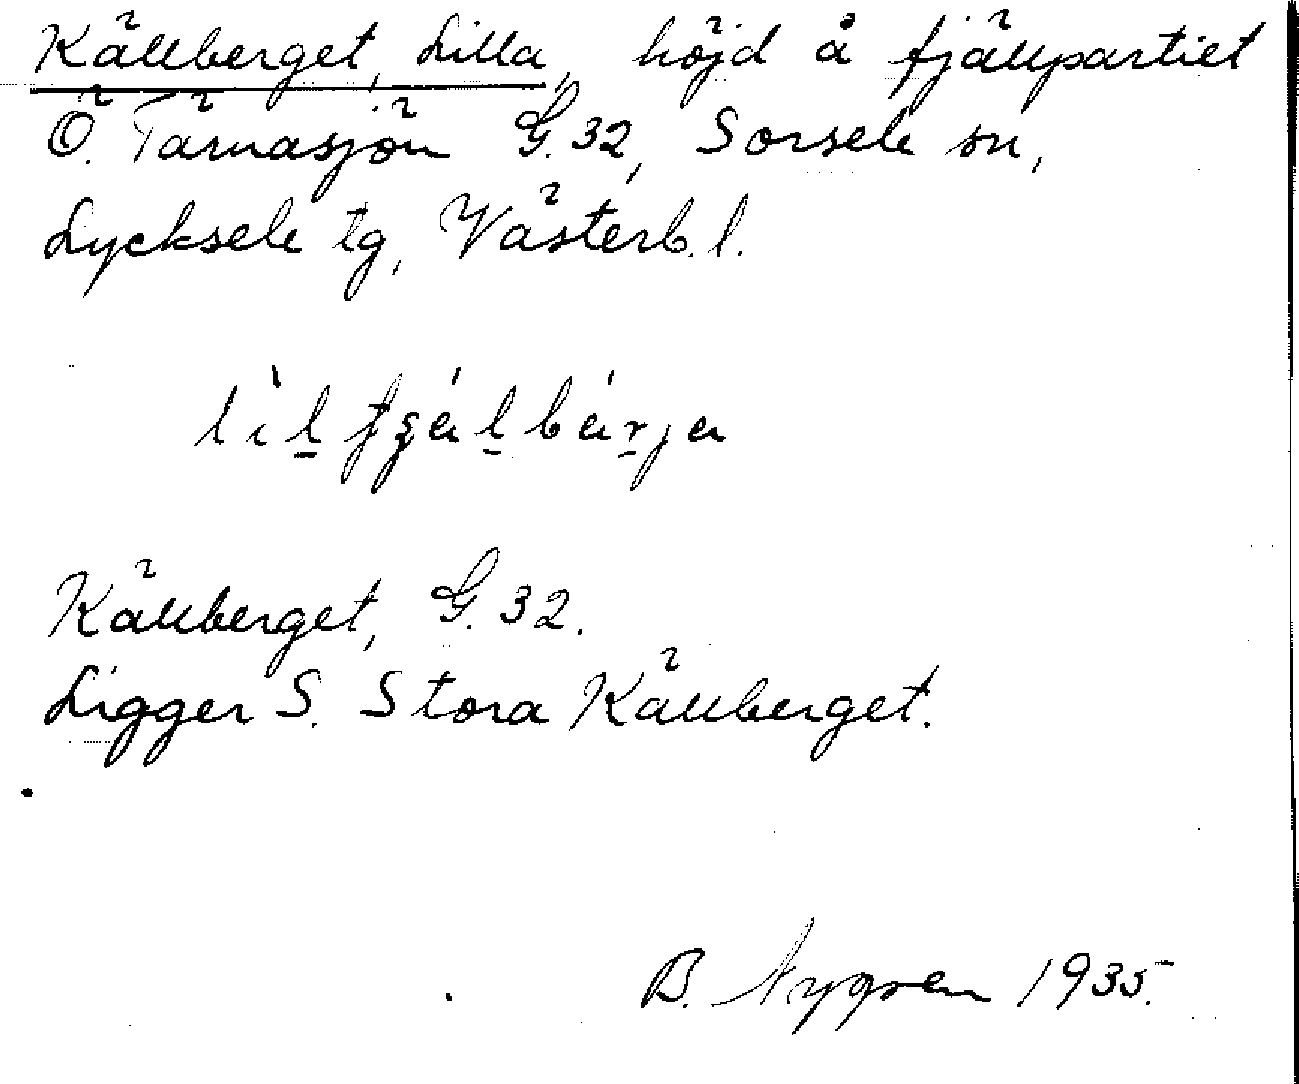 Källberget, Lilla, höjd å fjällpartiet
Ö. Tärnasjön G. 32, Sorsele sn,
Lycksele tg, Västerb. l.
Källberget, G. 32.
Ligger S. Stora Källberget.
B. Nygren 1935.